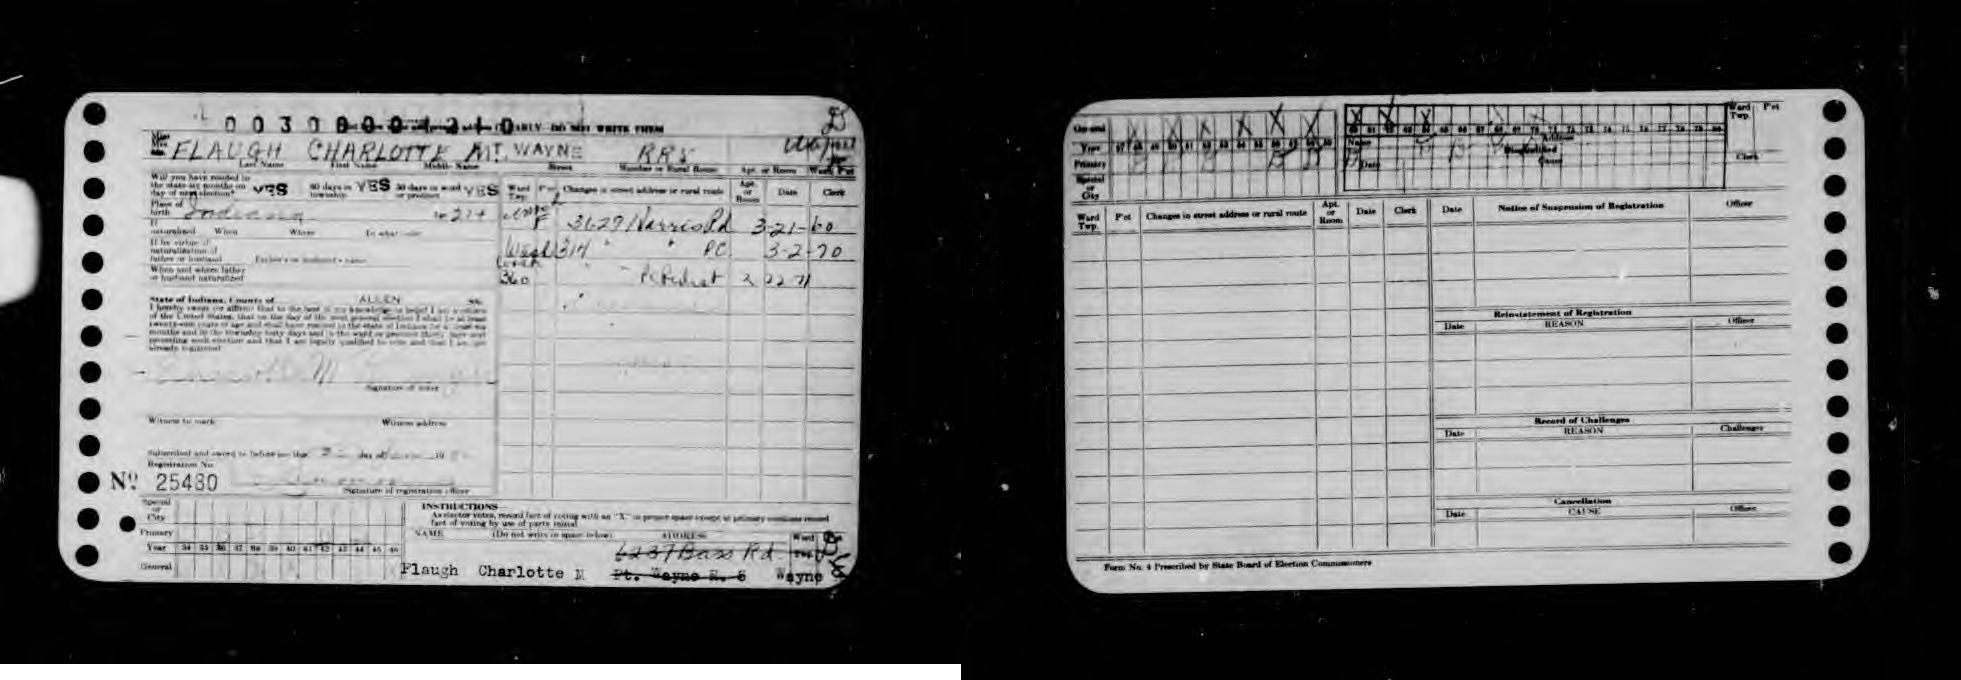 0 0 3 0 0 0 0 4 2 1 0 ARLY DO NOT WRITE THEM
FLAUGH CHARLOTTE M FT. WAYNE RR 5
Last Name First Name Middle Name Street Number or Rural Route Apt. or Room Ward P'ct
Will you have resided in
the state six months on
day of next election? YES 60 days in township YES 30 days in ward or precinct YES
Ward Twp. P'ct Changes in street address or rural route Apt. or Room Date Clerk
Place of birth Indiana 21+
3629 Harris Rd 3-21-60
If naturalized When Where To what
314 " " PC 3-2-70
If by virtue of
naturalization of
father or husband Father's or husband's name
When and where father
or husband naturalized
360 " 2 22 71
State of Indiana, County of ALLEN SS.
I hereby swear (or affirm) that to the best of my knowledge or belief I am a citizen
of the United States, that on the day of the next general election I shall be at least
twenty-one years of age and shall have resided in the state of Indiana for at least six
months and in the township sixty days and in the ward or precinct thirty days next
preceding such election and that I am legally qualified to vote and that I am not
already registered
M
Signature of voter
Witness to mark Witness address
Subscribed and sworn to before me this day of 19
Registration No.
No 25480
Signature of registration officer
Special or City
Primary
Year 34 35 36 37 38 39 40 41 42 43 44 45 46
General
INSTRUCTIONS—
As elector votes, record fact of voting with an "X" in proper space except in primary elections record
fact of voting by use of party initial
NAME (Do not write in space below) ADDRESS Ward Twp. P'ct
6237 Bass Rd
Flaugh Charlotte M Ft. Wayne R. 5 Wayne
General X X X X X X X X X
Year 47 48 49 50 51 52 53 54 55 56 57 58 59 60 61 62 63 64 65 66 67 68 69 70 71 72 73 74 75 76 77 78 79 80
Primary
Special or City
Name Address Ward Twp. P'ct
Date Disqualified Cause Clerk
Ward Twp. P'ct Changes in street address or rural route Apt. or Room Date Clerk
Date Notice of Suspension of Registration Officer
Reinstatement of Registration
Date REASON Officer
Record of Challenges
Date REASON Challenger
Cancellation
Date CAUSE Officer
Form No. 4 Prescribed by State Board of Election Commissioners